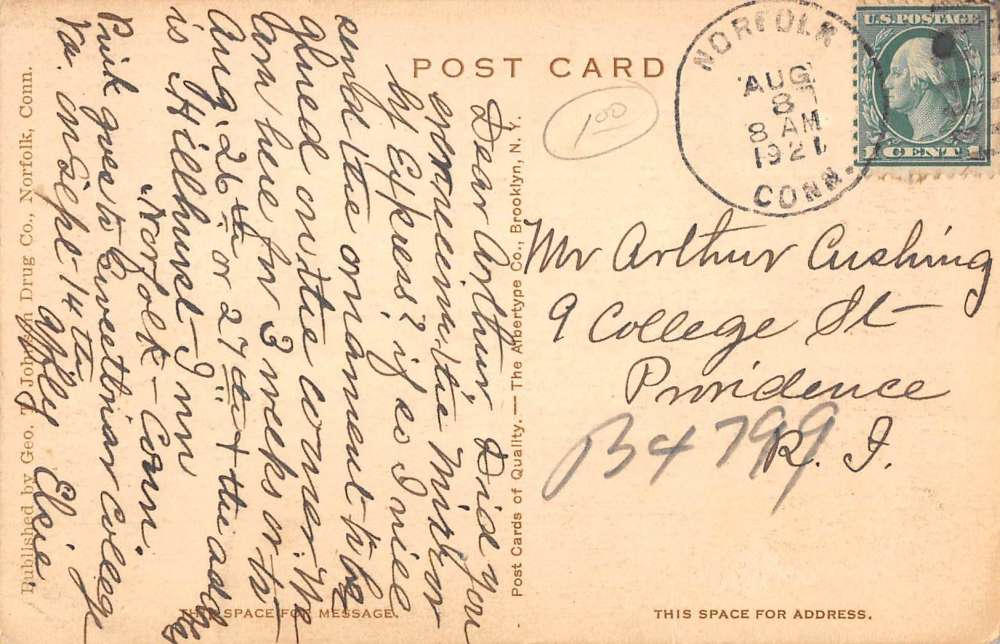 POST CARD
NORFOLK
AUG
8
8 AM
1921
CONN.
U.S. POSTAGE
1 CENT 1
1 00
Dear Arthur; Did you
ever receive the Mirror
by Express? if so I will
send the ornament to be
glued on the corner. We
are here for 3 weeks or to
Aug. 26th or 27th + the address
is Hillhurst-Inn
"Norfolk - Conn.
Pink goes to Sweetbriar College
Va. on Sept - 14th
Affly Elsie
Mr Arthur Cushing
9 College St
Providence
R. I.
B4799
Post Cards of Quality. — The Albertype Co., Brooklyn, N. Y.
Published by Geo. T. Johnson Drug Co., Norfolk, Conn.
THIS SPACE FOR MESSAGE.
THIS SPACE FOR ADDRESS.